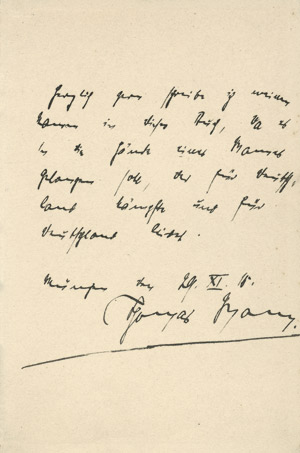 Herzlich gern schreibe ich meinen
Namen in dieses Buch, da es
in die Hände eines Mannes
gelangen soll, der für Deutsch-
land kämpfte und für
Deutschland leidet.
München den 29. XI. 15.
Thomas Mann.